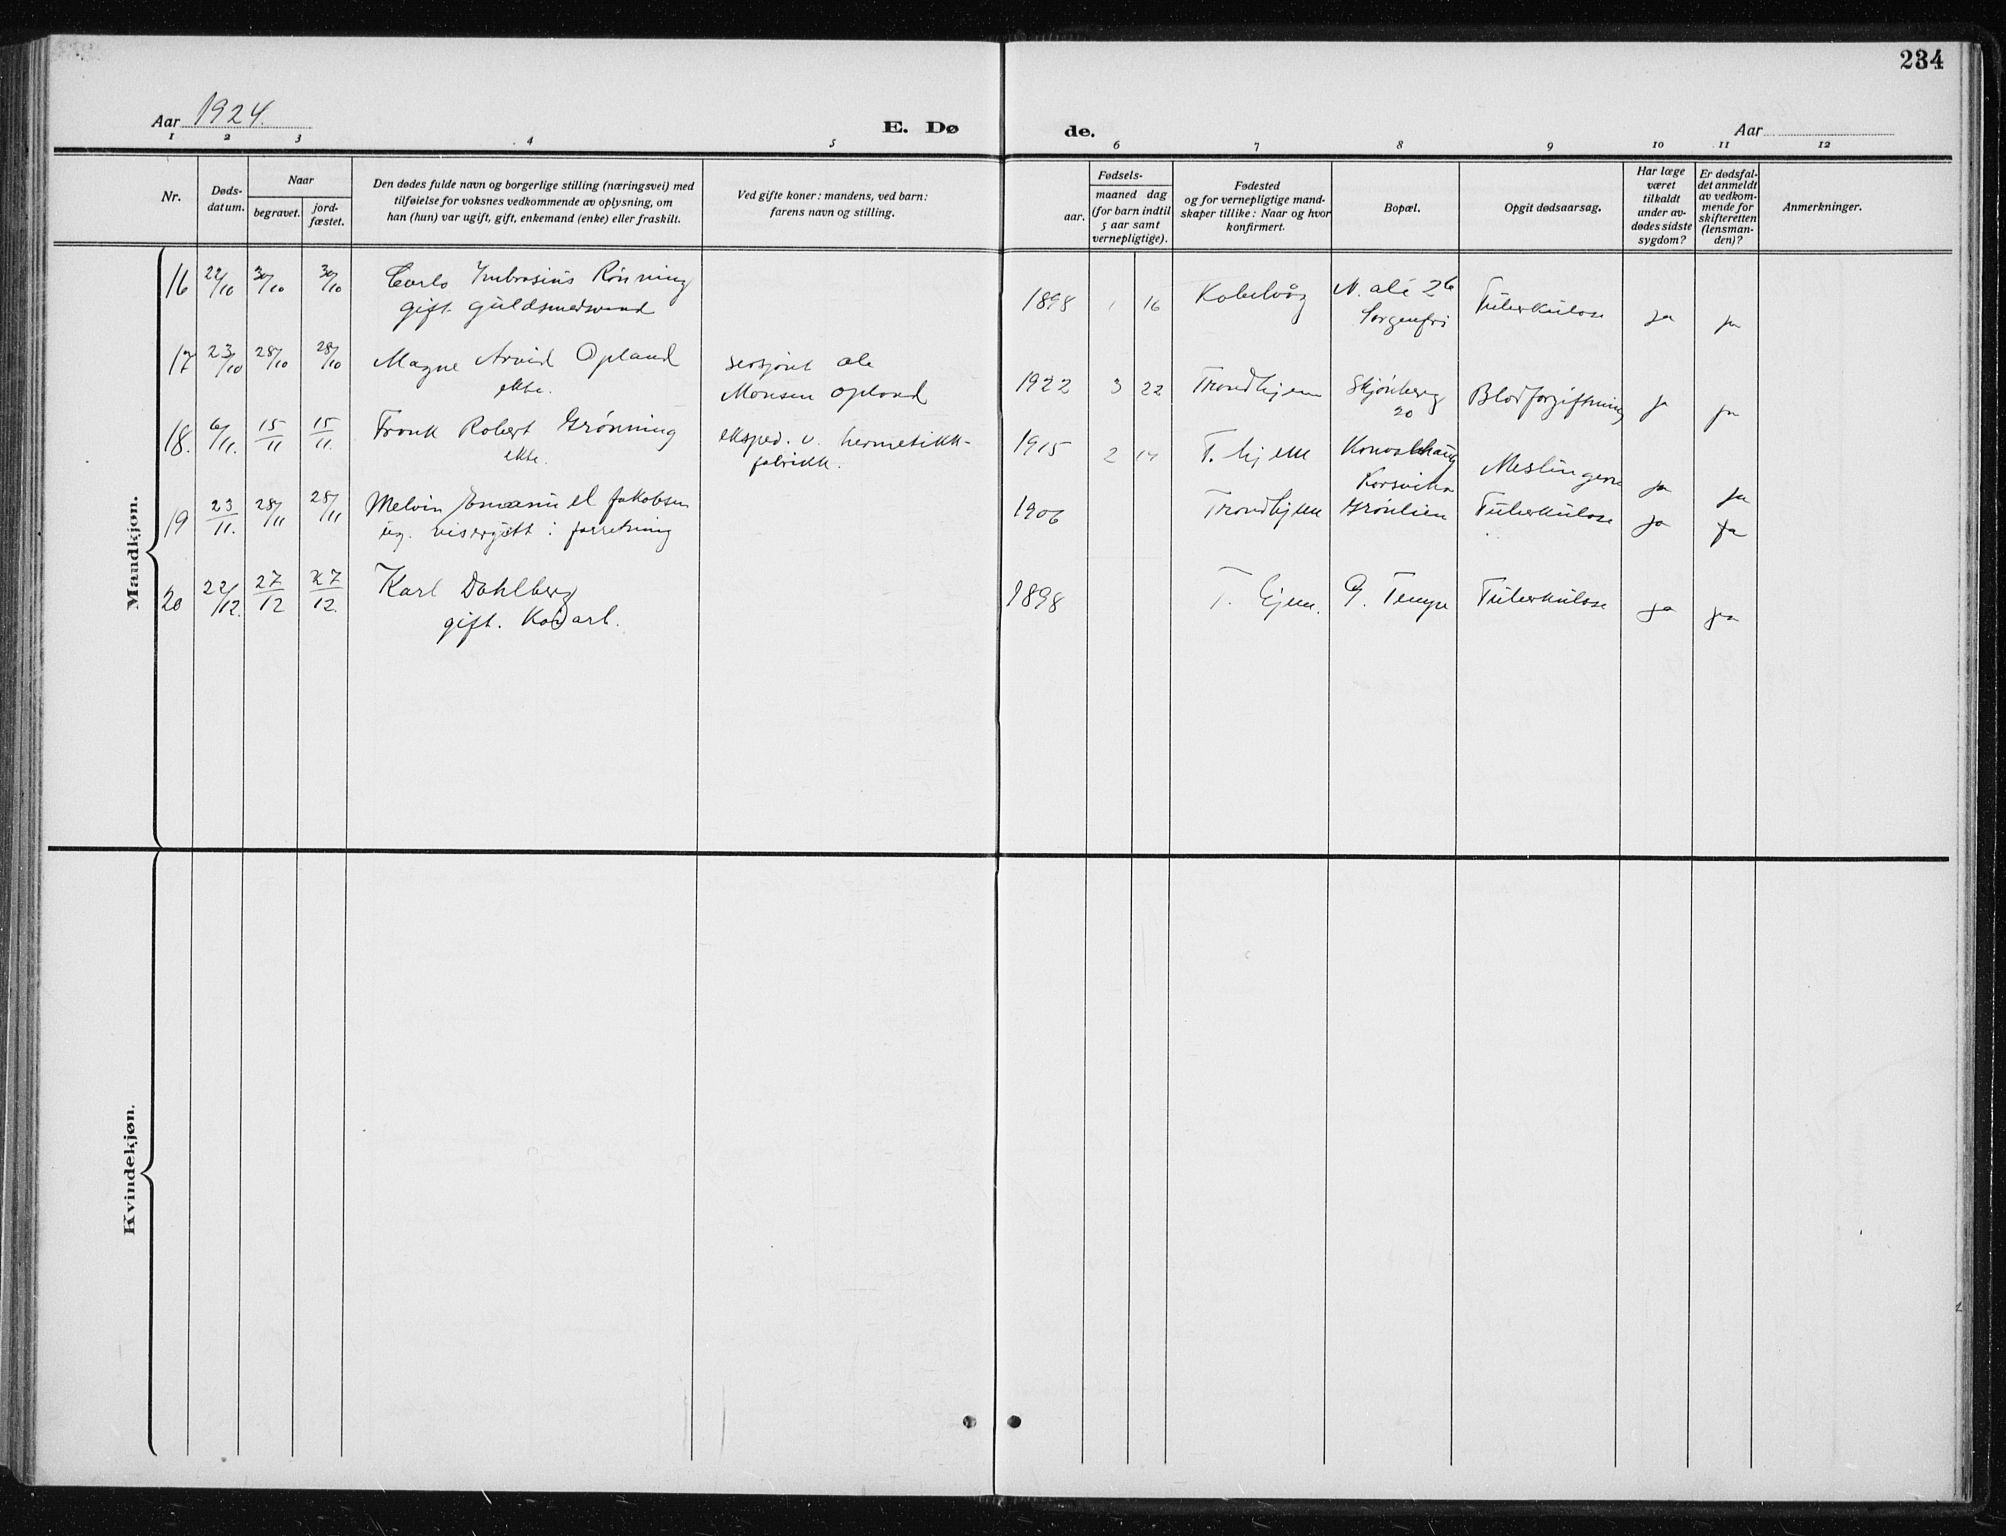 234
Aar 1924.
E. Døde.
Aar
1 2 3 4 5 6 7 8 9 10 11 12
Nr.
Døds-
datum.
Naar
begravet.
jord-
fæstet.
Den dødes fulde navn og borgerlige stilling (næringsvei) med
tilføielse for voksnes vedkommende av oplysning, om
han (hun) var ugift, gift, enkemand (enke) eller fraskilt.
Ved gifte koner: mandens, ved barn:
farens navn og stilling.
Fødsels-
aar.
maaned dag
(for barn indtil
5 aar samt
vernepligtige).
Fødested
og for vernepligtige mand-
skaper tillike: Naar og hvor
konfirmert.
Bopæl.
Opgit dødsaarsag.
Har læge
været
tilkaldt
under av-
dødes sidste
sygdom?
Er dødsfal-
det anmeldt
av vedkom-
mende for
skifteretten
(lensman-
den)?
Anmerkninger.
Mandkjøn.
16 22/10 30/10 30/10 Carlo Rönning 1898 1 16 N. alé 26 Tuberkulose ja ja
gift. guldsmedsvend Sorgenfri
17 23/10 28/10 28/10 Magne Arvid Opland 1922 3 22 Trondhjem Skjönberg Blodforgiftning ja ja
ekte. Monsen Opland 20
18. 6/11. 15/11 15/11. Frank Robert Grönning eksped. v. hermetikk- 1915 2 14 T. hjem Meslingerne ja ja
ekte. fabrikk. Korsvika
19 23/11. 28/11 28/11 Melvin Emanuel Jakobsen 1906 Trondhjem Grönlien Tuberkulose ja ja
ug. visergutt i forretning
20 22/12. 27/12 27/12. Karl Dahlberg 1898 T. hjem. Ö. Tempe Tuberkulose ja ja
gift.
Kvindekjøn.